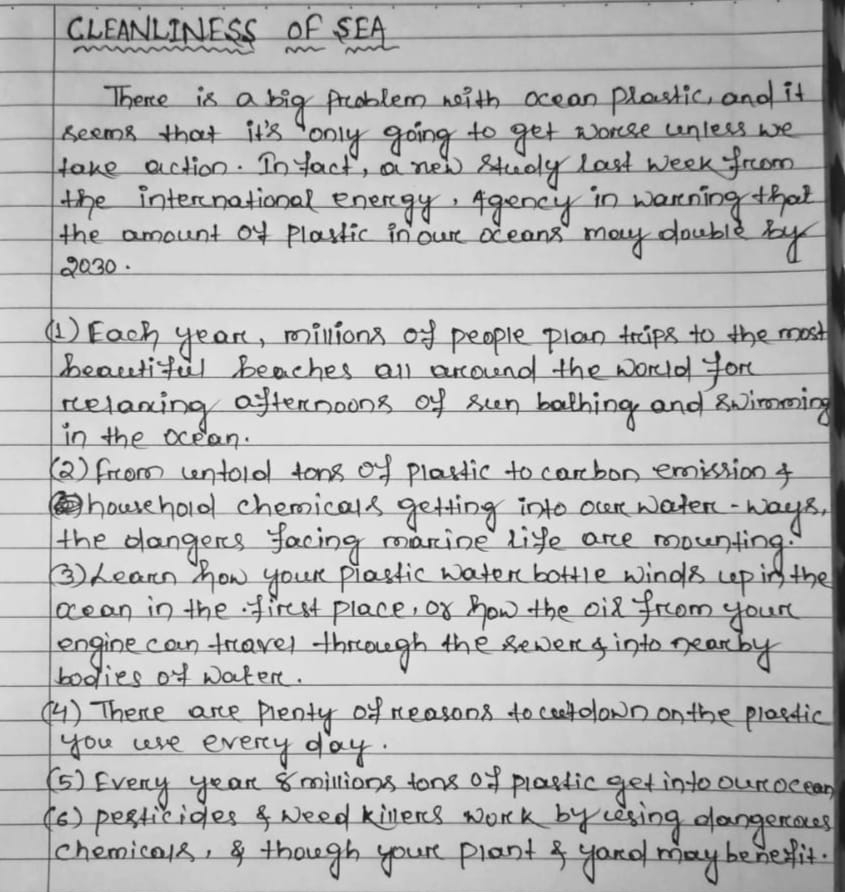 CLEANLINESS OF SEA
There is a big problem with ocean plastic, and it
seems that it's "only going to get worse unless we
take action. In fact", a new study last week from
the international energy, Agency in warning that
the amount of plastic in our oceans may double by
2030.
(1) Each year, millions of people plan trips to the most
beautiful beaches all around the world for
relaxing afternoons of sun bathing and swimming
in the ocean.
(2) from untold tons of plastic to carbon emission &
household chemicals getting into our water-ways,
the dangers facing marine life are mounting.
(3) Learn how your plastic water bottle winds up in the
ocean in the first place, or how the oil from your
engine can travel through the sewer & into nearby
bodies of water.
(4) There are plenty of reasons to cut down on the plastic
you use every day.
(5) Every year 8 millions tons of plastic get into our ocean
(6) pesticides & weed killers work by using dangerous
chemicals, & though your plant & yard may benefit.